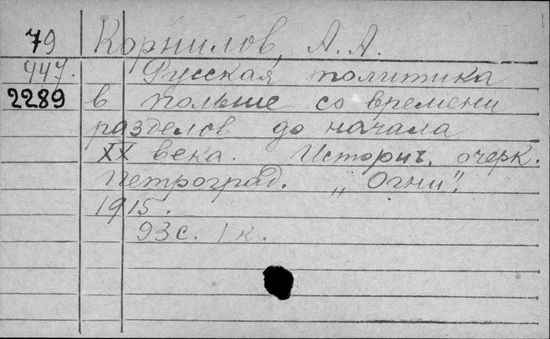 79 Корнилов, А. А.
447. Русская политика
2289 в Польше со времени
разделов до начала
XX века. Историч. очерк.
Петроград. „Огни".
1915.
93 с. 1 к.